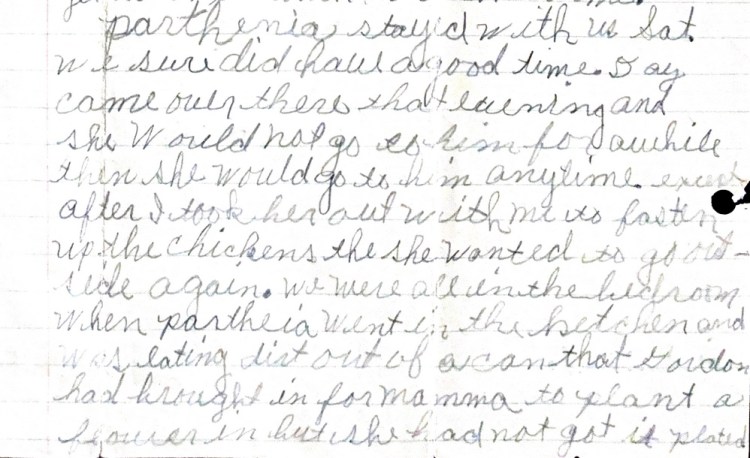 parthenia stayed with us Sat.
we sure did have a good time. Day
came over there that evening and
she would not go to him for awhile
then she would go to him anytime. except
after I took her out with me to fasten
up the chickens the she wanted to go out-
side again. we were all in the bedroom
when partheia went in the ketchen and
was eating dirt out of a can that Gordon
had brought in for mamma to plant a
flower in but she had not got it plated